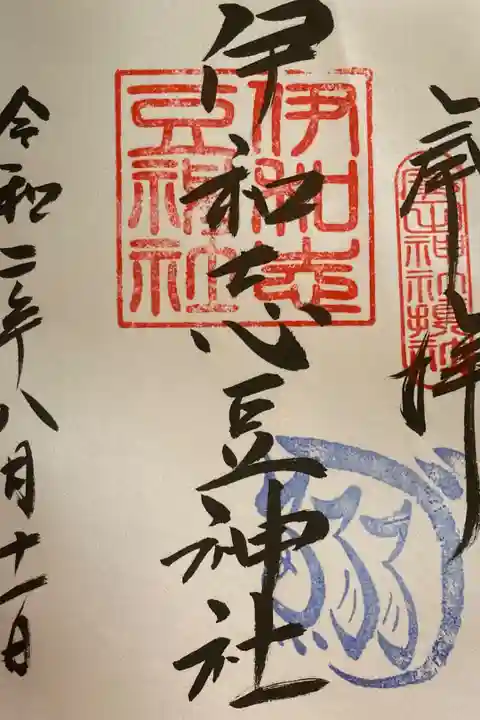 奉拝
廣田神社摂社
伊和志豆神社
伊和志
豆神社
鰯
令和二年八月十一日